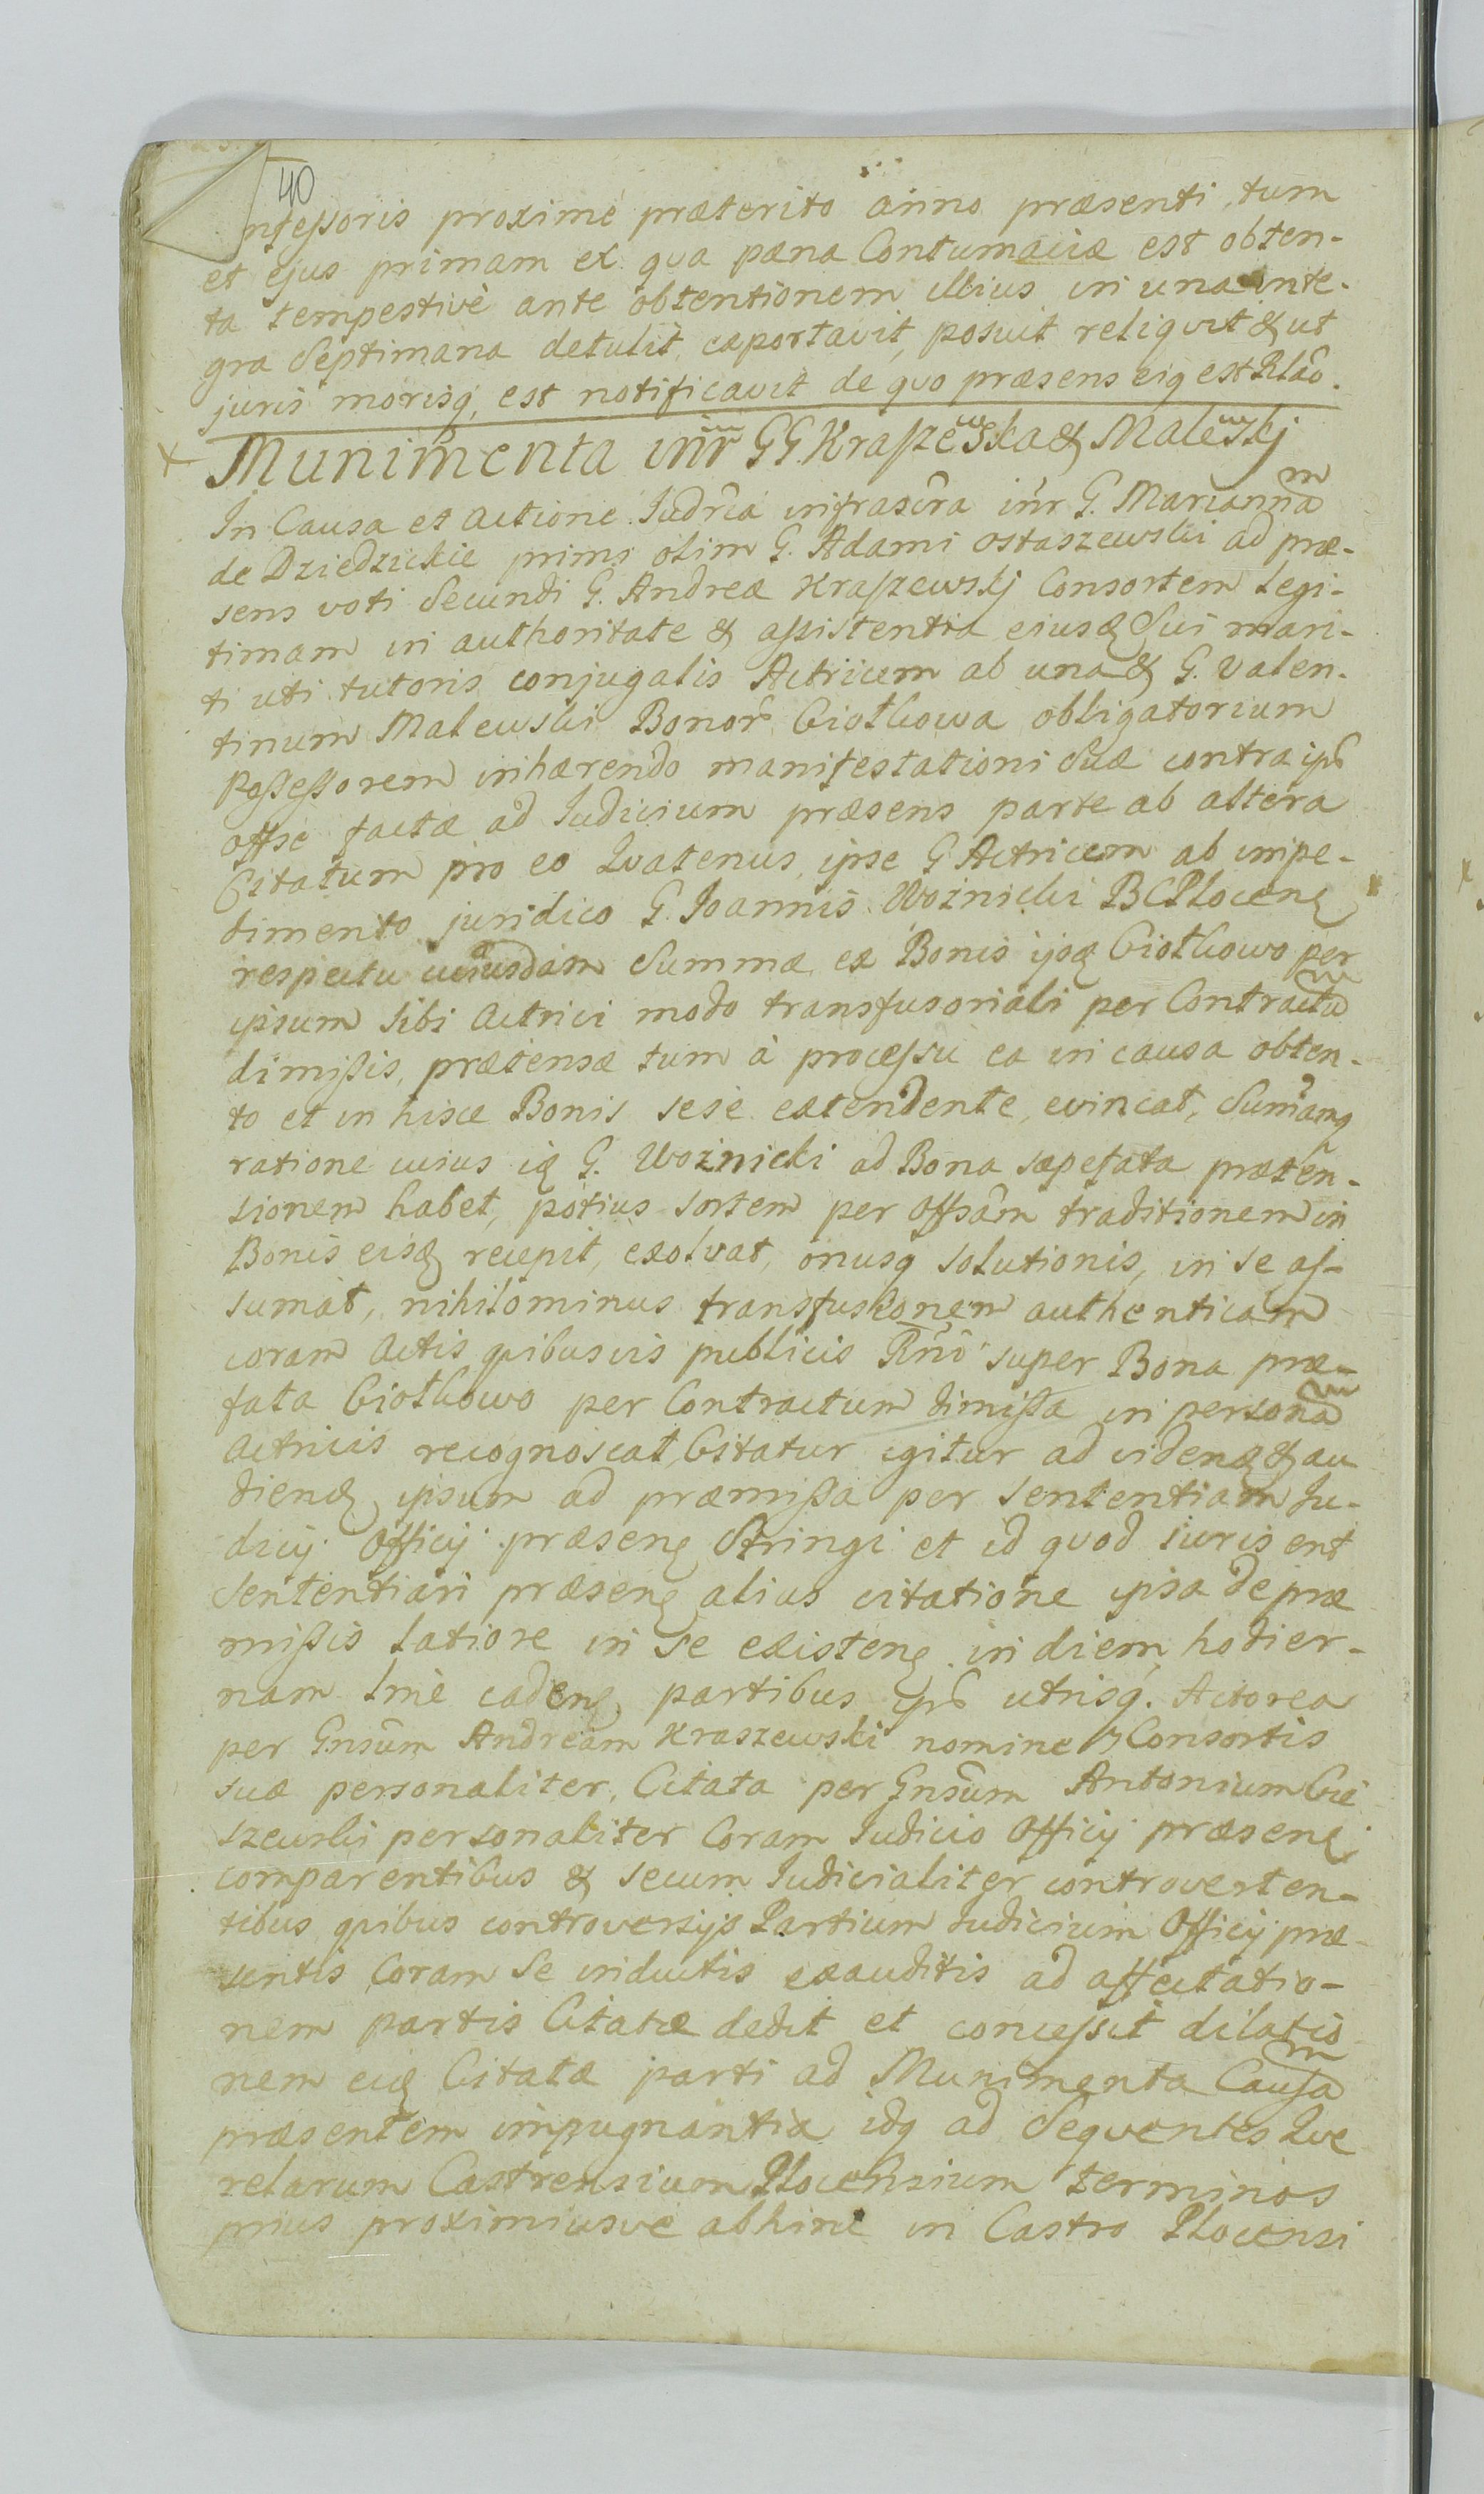 40
nfeſsoris proximè præterito anno præsenti, tum
et ejus primam ex qva pæna Contumaciæ est obten-
ta tempestivè ante obtentionem illius in una inte-
gra Septimana detulit, exportavit, posuit reliqvit & ut
juris morisq, est notificavit de qvo præsens eiq est Rlão.
Munimenta inr̃ GG. Kraſzewska & Malewskj
In Causa et actione Judr̃ia infrascr̃a inr̃ G. Mariannam
de Dziedzickie primi olim G. Adami Ostaszewski ad præ-
sens voti Secundi G. Andreæ Kraſzewskj Consortem legi-
timam in authoritate & aſsistentia ejusq Sui mari-
ti uti tutoris conjugalis Actricem ab una & G. Valen-
tinum Malewski Bonor̃ Ciołkowa obligatorium
Poſseſsorem inhærendo manifestationi Suæ contra ips̃
offse factæ ad Judicium præsens parte ab altera
Citatum pro eo Qvatenus, ipse G Actricem ab impe-
dimento juridico G. Joannis Woznicki BCPlocenς
respectu cuiusdam Summæ, ex Bonis ijsq Ciołkowo per
ipsum sibi Actrici modo transfusoriali per Contractum
dimiſsis, prætensæ tum à proceſsu ea in causa obten-
to et in hisce Bonis sese extendente, evincat, Sum̃amq
ratione cuius iq G. Woznicki ad Bona sæpefata præten-
sionem habet, potius sortem per Offsãm traditionem in
Bonis eisq recepit, exolvat, onusq solutionis, in se aſ-
sumat, nihilominus transfusionem authenticam
coram Actis qvibusvis publicis Rñi super Bona præ-
fata Ciołkowo per Contractum dimiſsa in personam
Actricis recognoscat, Citatur igitur ad videnς & au
dienς ipsum ad præmiſsa per Sententiam Ju-
dicij Officij præsenς Stringi et id qvod Juris erit
Sententiari præsenς alias citatione ipsa de præ
miſsis latiore in se existenς in diem hodier-
nam lmè cadenς, partibus ips̃ utrisq. Actorea
per Gnsũm Andream Kraszewski nomine Consortis
suæ personaliter, Citata per Gnsũm Antonium Cie
szewski personaliter Coram Judicio Officij præsenς
comparentibus & secum Judicialiter controverten-
tibus qvibus controversijs Partium Judicium Officij præ-
sentis Coram Se inductis exauditis ad affectatio-
nem partis Citatæ dedit et conceſsit dilatio
nem eiq Citatæ parti ad Munimenta Cauſam
præsentem impugnantia idq ad Seqventes Qve
relarum Castrensium Plocensium terminos
prius proximiusve abhinc in Castro Plocensi